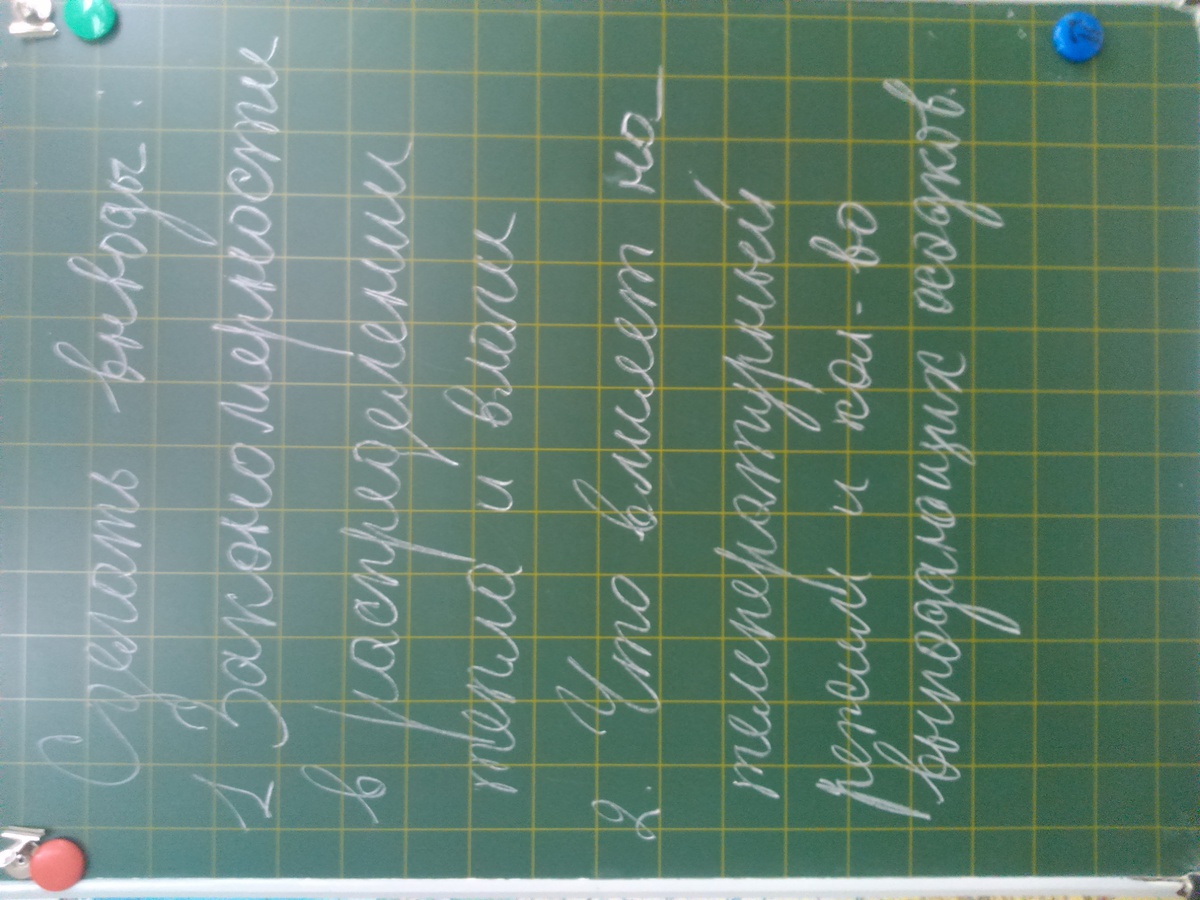 Сделать выводы.
1 Закономерности
в распределении
тепла и влаги
2. Что влияет на
температурный
режим и кол-во
выпадающих осадков.